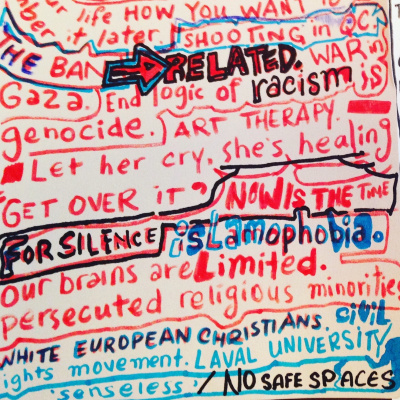 ur life HOW YOU WANT TO
ber it later. SHOOTING in QC.
THE BAN RELATED. WAR in
Gaza. End logic of racism is
genocide. ART THERAPY.
Let her cry, she's healing
"GET OVER IT" NOW IS THE TIME
FOR SILENCE islamophobia.
Our brains are Limited.
persecuted religious minorities
WHITE EUROPEAN CHRISTIANS. civil
ights movement. LAVAL UNIVERSITY
"senseless" / NO SAFE SPACES